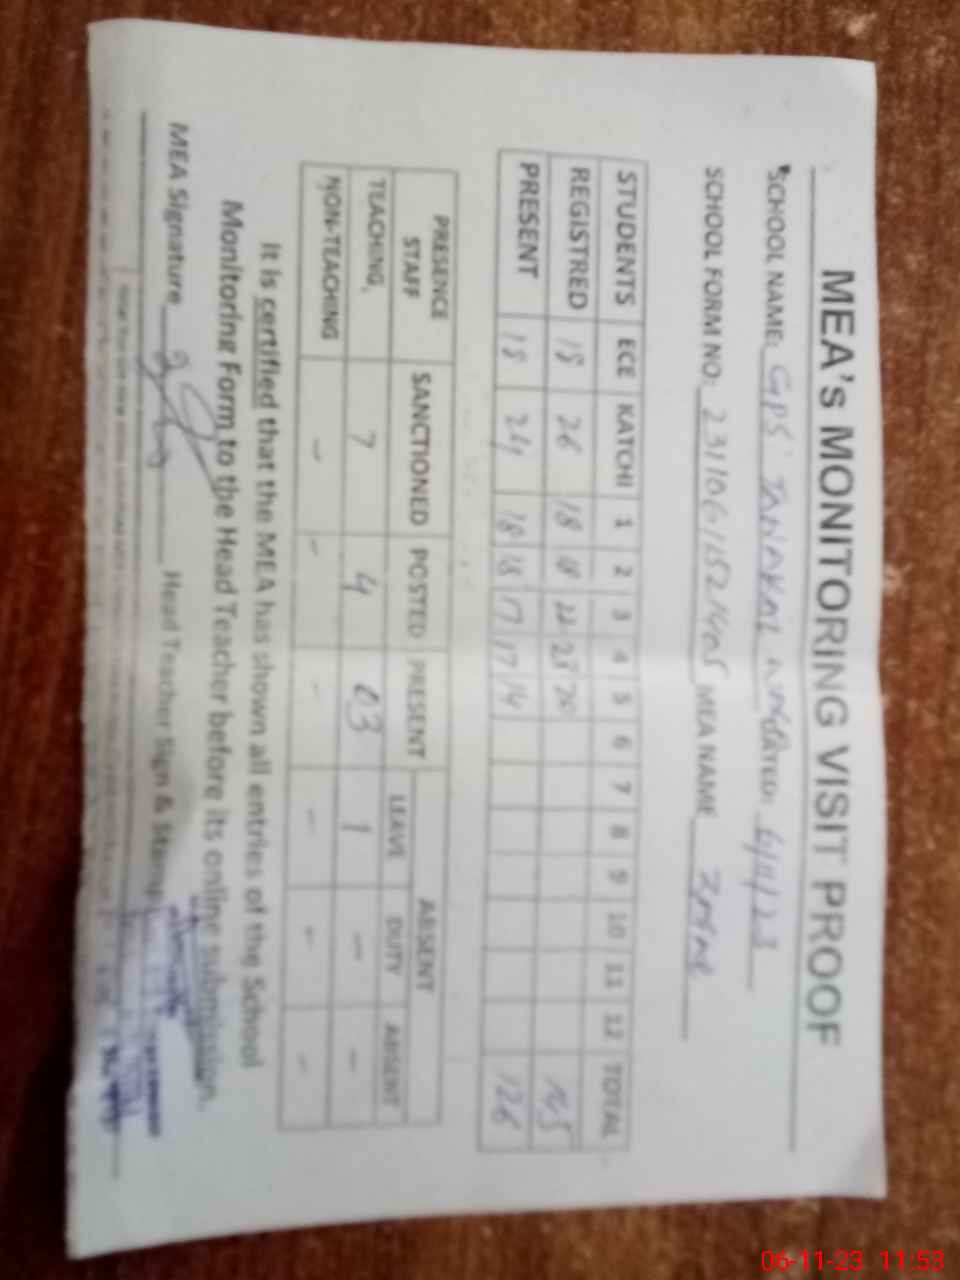 MEA's MONITORING VISIT PROOF
SCHOOL NAME: GPS DATED: 6/11/23
SCHOOL FORM NO: MEA NAME
STUDENTS ECE KATCHI 1 2 3 4 5 6 7 8 9 10 11 12 TOTAL
REGISTRED 18 26 18 18 22 23 20 145
PRESENT 18 24 18 18 17 17 14 126
PRESENCE STAFF SANCTIONED POSTED PRESENT ABSENT
LEAVE DUTY ABSENT
TEACHING 7 4 03 1 - -
NON-TEACHING - - - - - -
It is certified that the MEA has shown all entries of the School
Monitoring Form to the Head Teacher before its online submission.
MEA Signature Head Teacher Sign & Stamp
06-11-23 11:53